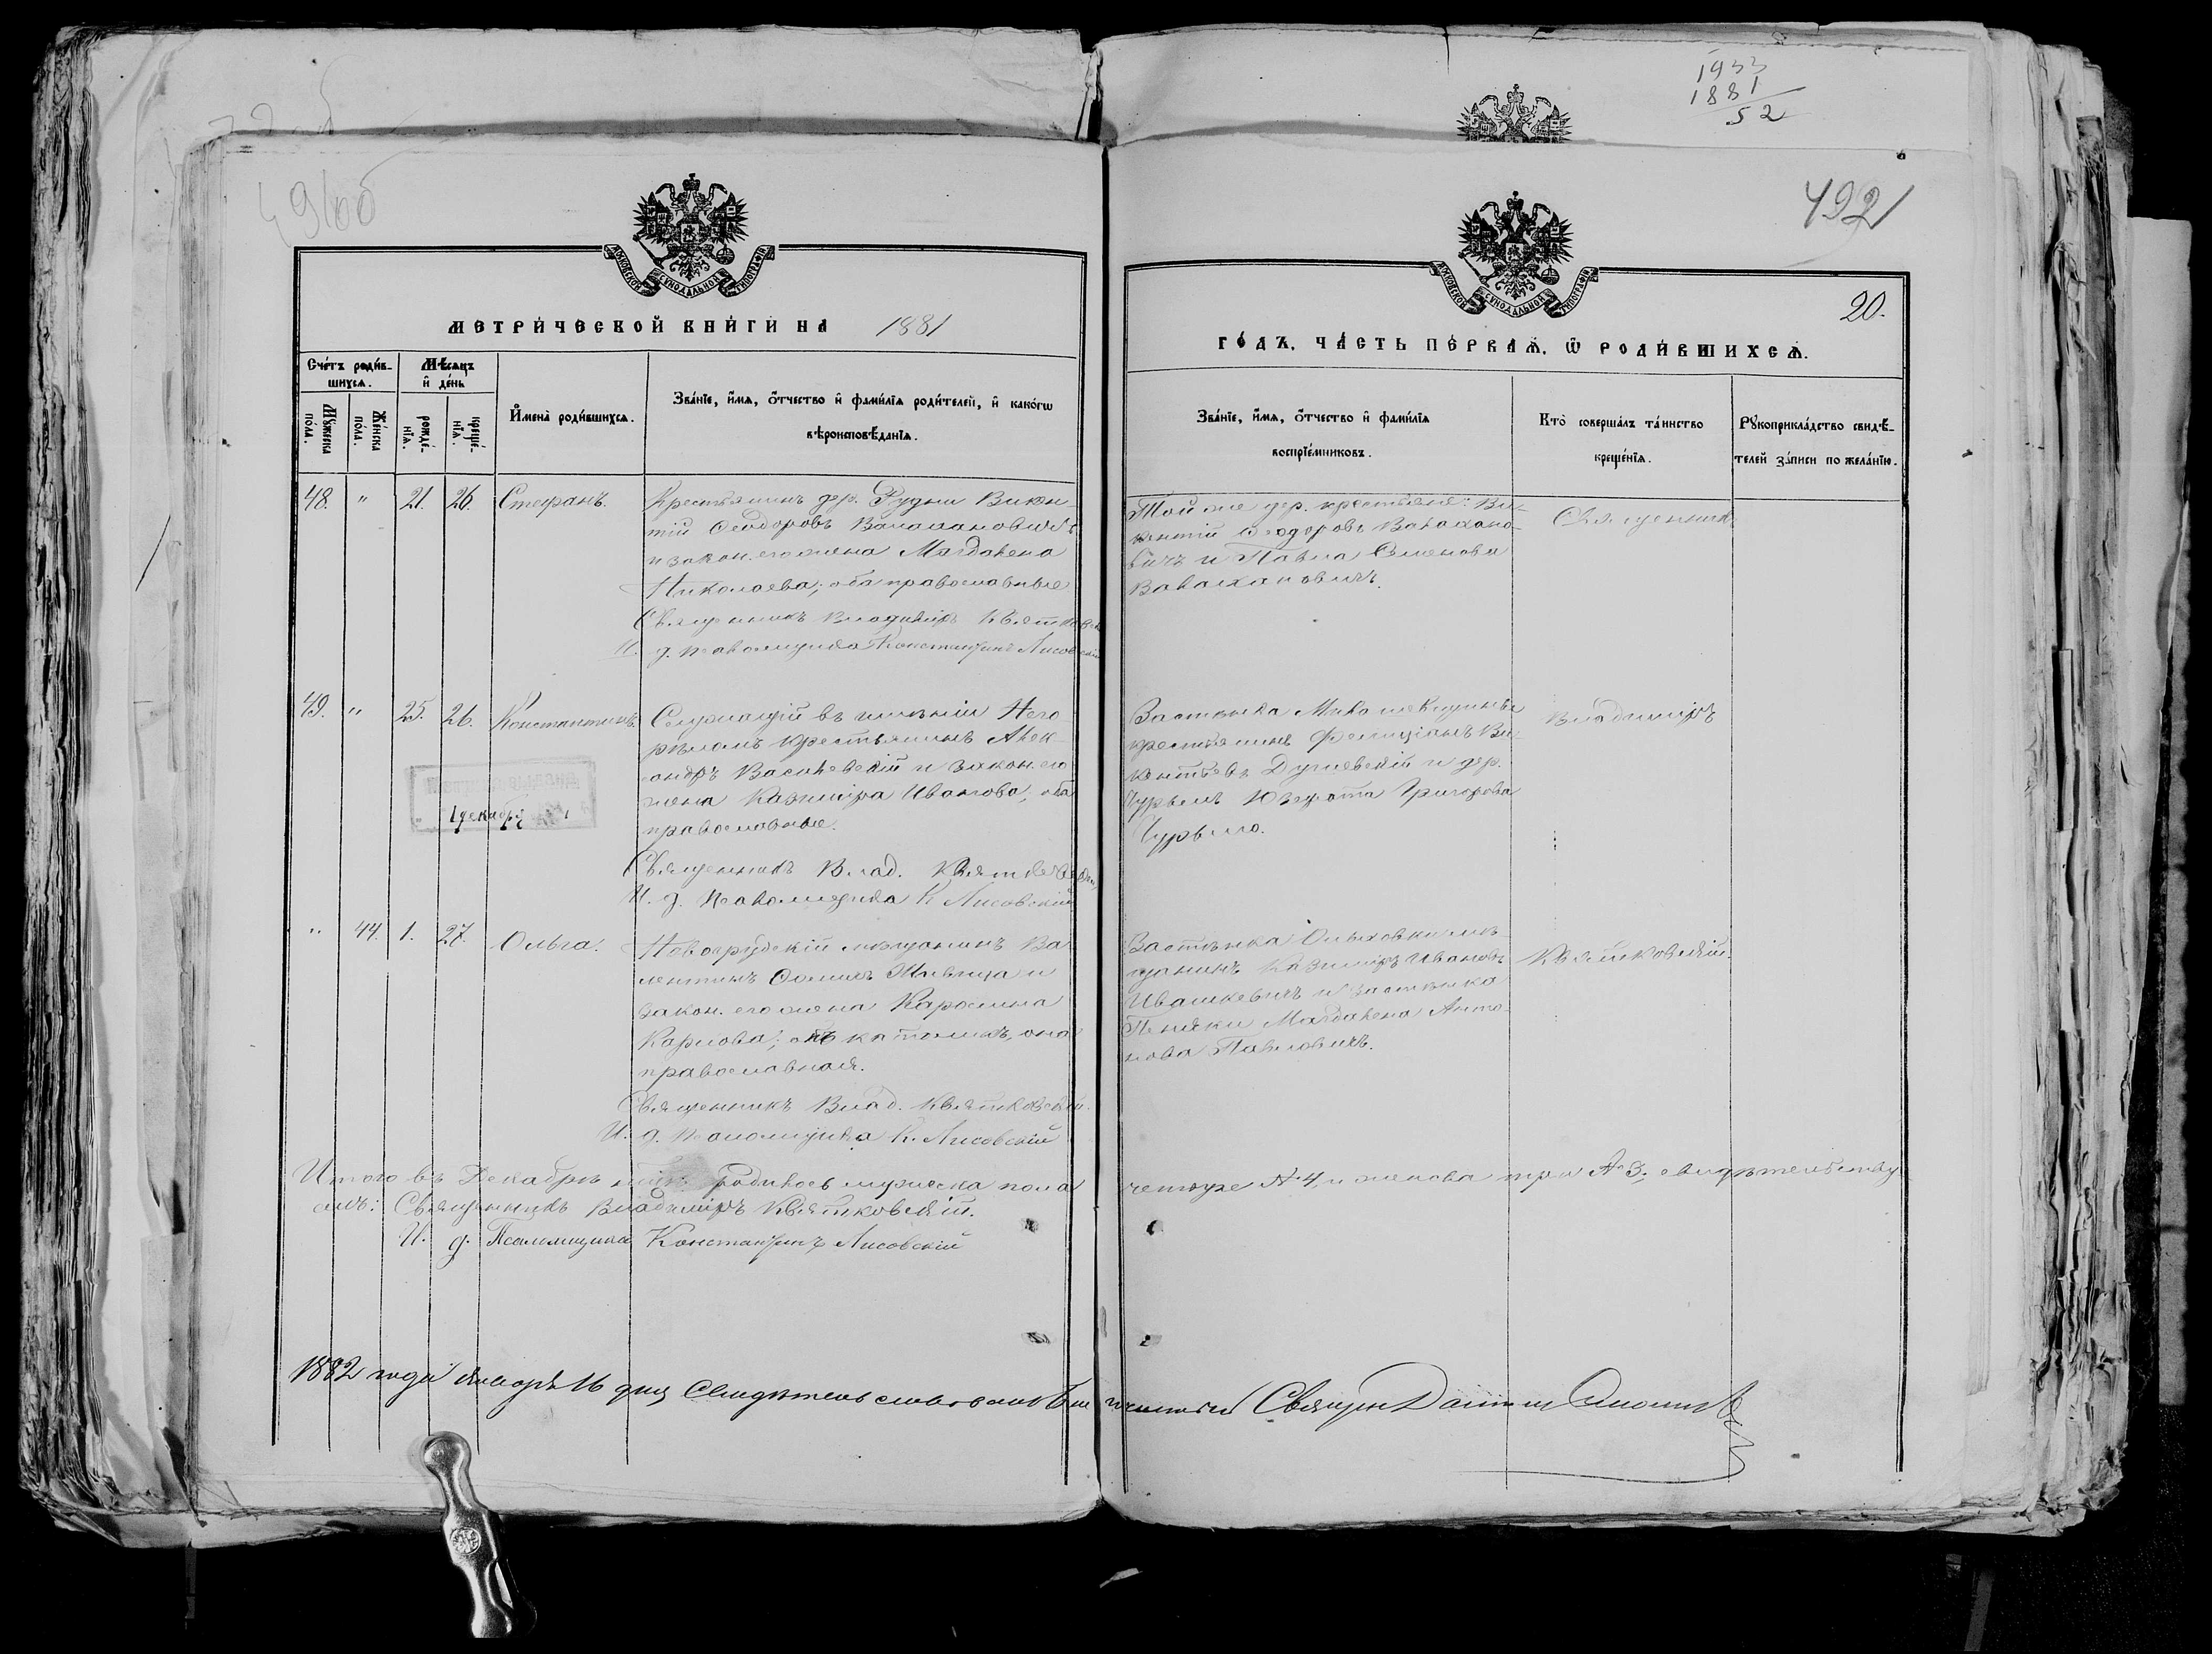 1933
1881
52
491об
492
МОСКОВСКОЙ СУНОДАЛЬНОЙ ТИПОГРАФІИ
МОСКОВСКОЙ СУНОДАЛЬНОЙ ТИПОГРАФІИ
20.
МЕТРИ́ЧЕСКОЙ КНИ́ГИ НА 1881
ГО́ДЪ, ЧА́СТЬ ПЕ́РВАѦ, Ѿ РОДИ́ВШИХСѦ.
Сче́тъ роди́в-
шихсѧ.
Мѣ́сѧцъ
и҆ де́нь
Мꙋ́жеска
по́ла.
Же́нска
по́ла.
рожде́-
нїѧ.
креще́-
нїѧ.
И҆мена̀ роди́вшихсѧ.
Зва́нїе, и҆́мѧ, ѻ҆́тчество и҆ фами́лїѧ роди́телей, и҆ како́гѡ
вѣроисповѣ́данїѧ.
Зва́нїе, и҆́мѧ, ѻ҆́тчество и҆ фами́лїѧ
воспрїе́мниковъ.
Кто̀ соверша́лъ та́инство
креще́нїѧ.
Рꙋкоприкла́дство свидѣ́-
телей за́писи по жела́нїю.
48. " 21. 26. Стефанъ.
Крестьянинъ дер. Рудни Викен-
тій Ѳеодоровъ
и закон. его жена Магдалена
Николаева; оба православные
Священникъ Владиміръ Квятковскій
И. д. псаломщика Константинъ Лисовскій
Той же дер. крестьяне: Ви-
кентій Ѳеодоровъ
и Павла Семенова
Священникъ
49. " 25. 26. Константинъ.
Служащій въ имѣніи Него-
рѣломъ крестьянинъ Алек-
сандръ Василевскій и закон. его
жена Казимира Иванова; оба
православные.
Священникъ Влад. Квятковскій
И. д. Псаломщика К. Лисовскій
1 декабр
Застѣнка
крестьянинъ Фелиціанъ Ви-
кентьевъ и дер.
Юзефата Григорова
Владиміръ
" 44. 1. 27. Ольга.
Новогрудскій мѣщанинъ Ва-
лентинъ Жывица и
закон. его жена Каролина
Карлова; онъ католикъ, она
православная.
Священникъ Влад. Квятковскій.
И. д. псаломщика К. Лисовскій
Застѣнка мѣ-
щанинъ Казиміръ Ивановъ
Ивашкевичъ и застѣнка
Магдалена Анто-
нова Павловичъ.
Квятковскій.
Итого въ Декабрѣ родилось мужеска пола четыре №4, и женска три №3; свидѣтельству-
емъ: Священникъ Владиміръ Квятковскій.
И. д. Псаломщика Константинъ Лисовскій
1882 года января 16 дня Священ